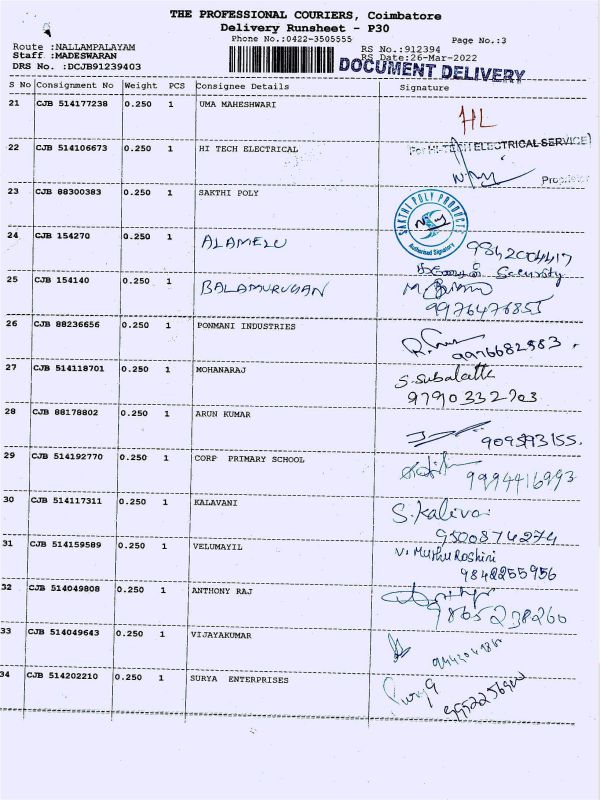 THE PROFESSIONAL COURIERS, Coimbatore
Delivery Runsheet - P30
Phone No.:0422-3505555
Page No.:3
Route :NALLAMPALAYAM
RS No.:912394
Staff :MADESWARAN
RS Date:26-Mar-2022
DRS No. :DCJB91239403
DOCUMENT DELIVERY
S No Consignment No Weight PCS Consignee Details Signature
21 CJB 514177238 0.250 1 UMA MAHESHWARI HL
22 CJB 514106673 0.250 1 HI TECH ELECTRICAL For HI-TECH ELECTRICAL SERVICE
Proprietor
23 CJB 88300383 0.250 1 SAKTHI POLY SAKTHI POLY PRODUCTS
Authorised Signatory
24 CJB 154270 0.250 1 ALAMELU 9842004417
Security
25 CJB 154140 0.250 1 BALAMURUGAN
9976476855
26 CJB 88236656 0.250 1 PONMANI INDUSTRIES 9976682583
27 CJB 514118701 0.250 1 MOHANARAJ
9790332703
28 CJB 88178802 0.250 1 ARUN KUMAR
29 CJB 514192770 0.250 1 CORP PRIMARY SCHOOL 9994416993
30 CJB 514117311 0.250 1 KALAVANI S.Kalivai
9500874274
31 CJB 514159589 0.250 1 VELUMAYIL V. Muthu Roshini
9842255956
32 CJB 514049808 0.250 1 ANTHONY RAJ
9865238260
33 CJB 514049643 0.250 1 VIJAYAKUMAR
34 CJB 514202210 0.250 1 SURYA ENTERPRISES